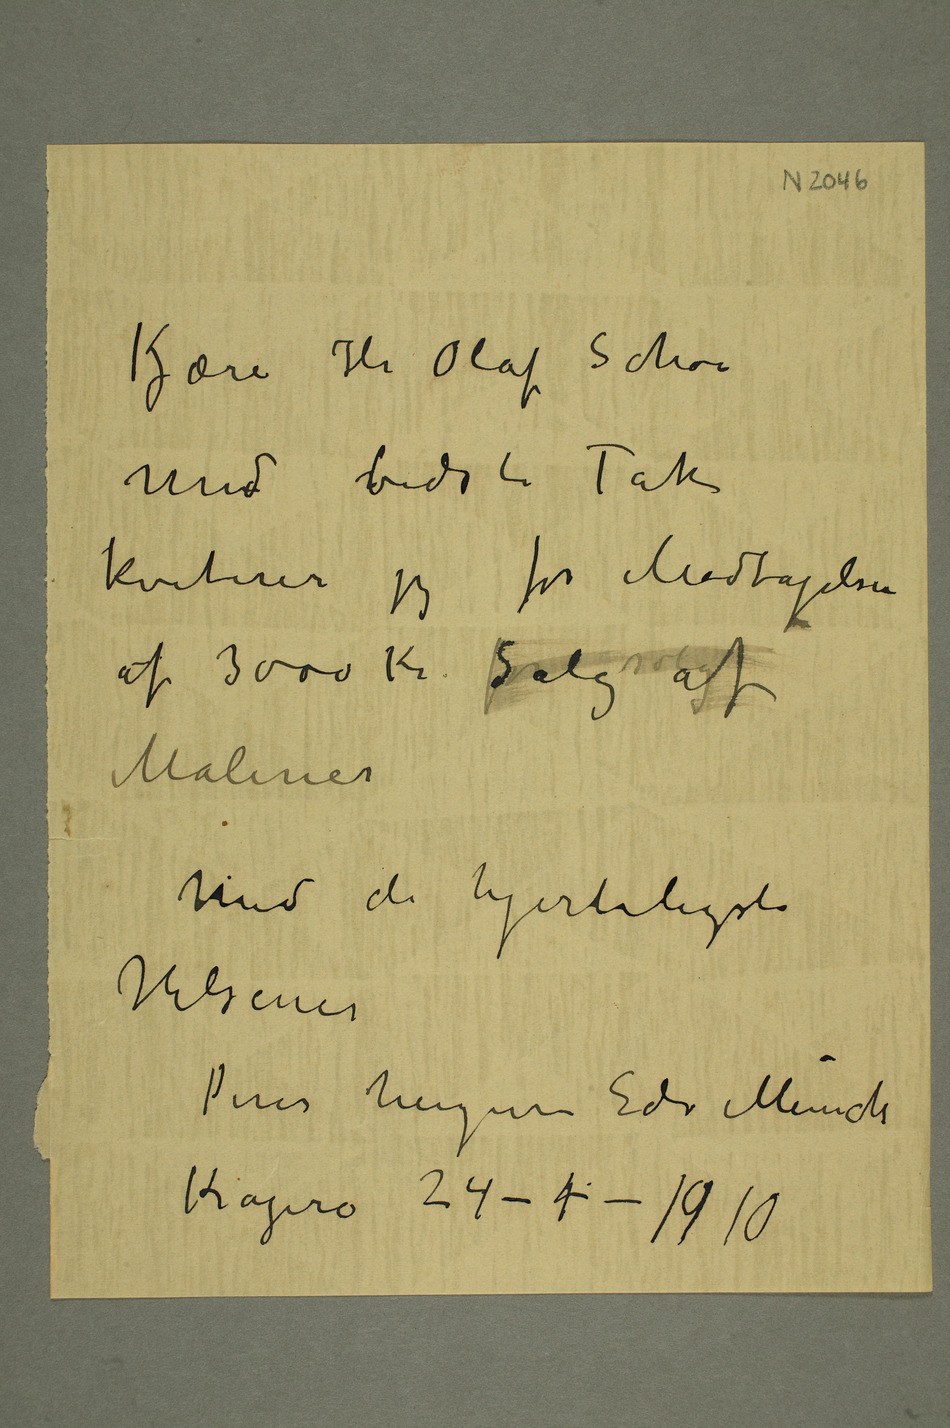 N 2046
Kjære Hr Olaf Schou
med bedste Tak
kviterer jeg for Modtagelsen
af 3000 Kr. Salg af
Malerier
Med de hjerteligste
Hilsener
Deres hengivne Edv Munch
Kragerø 24 – 4 – 1910